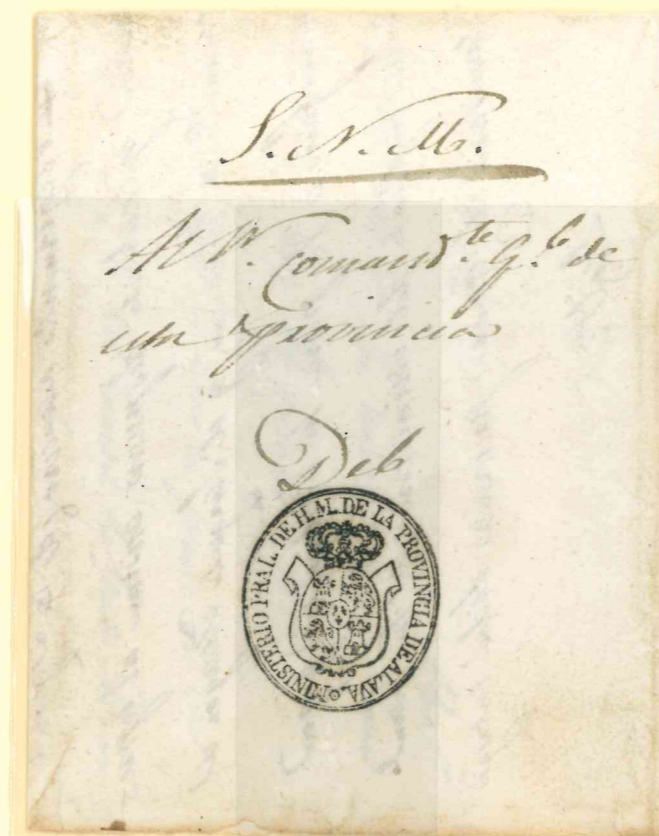 S. N. M.
Al Sr. Comand.te G.l de
esta Provincia
Del
MINISTERIO PRAL. DE H. M. DE LA PROVINCIA DE ALAVA.